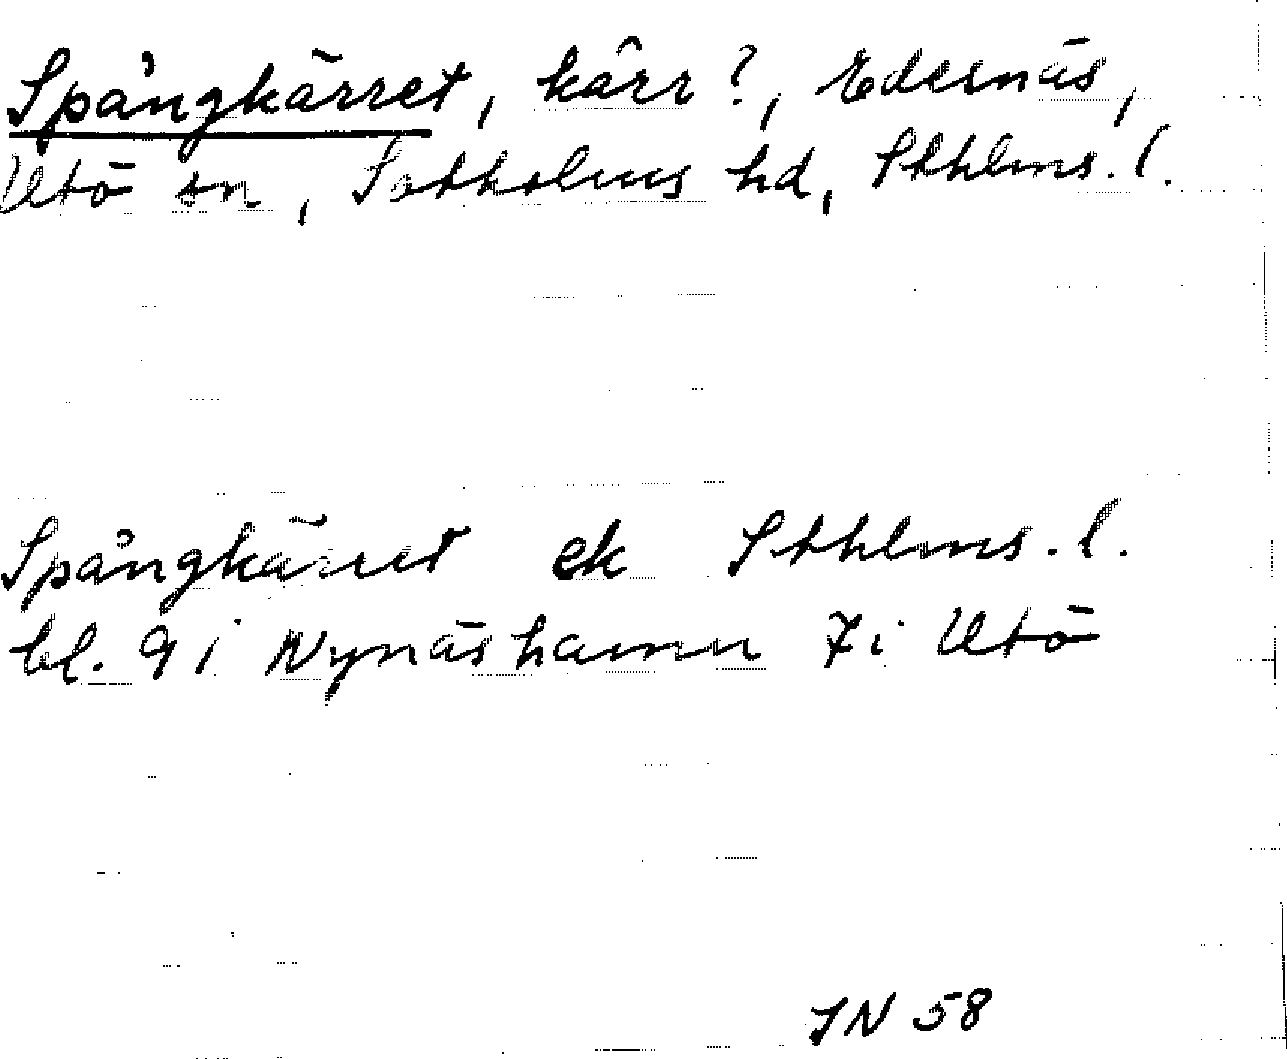 Spångkärret, kärr?, Edesnäs,
Utö sn, Sotholms hd, Sthlms. l.
Spångkärret ek Sthlms. l.
bl. 9 i Nynäshamn 7 i Utö
JN 58